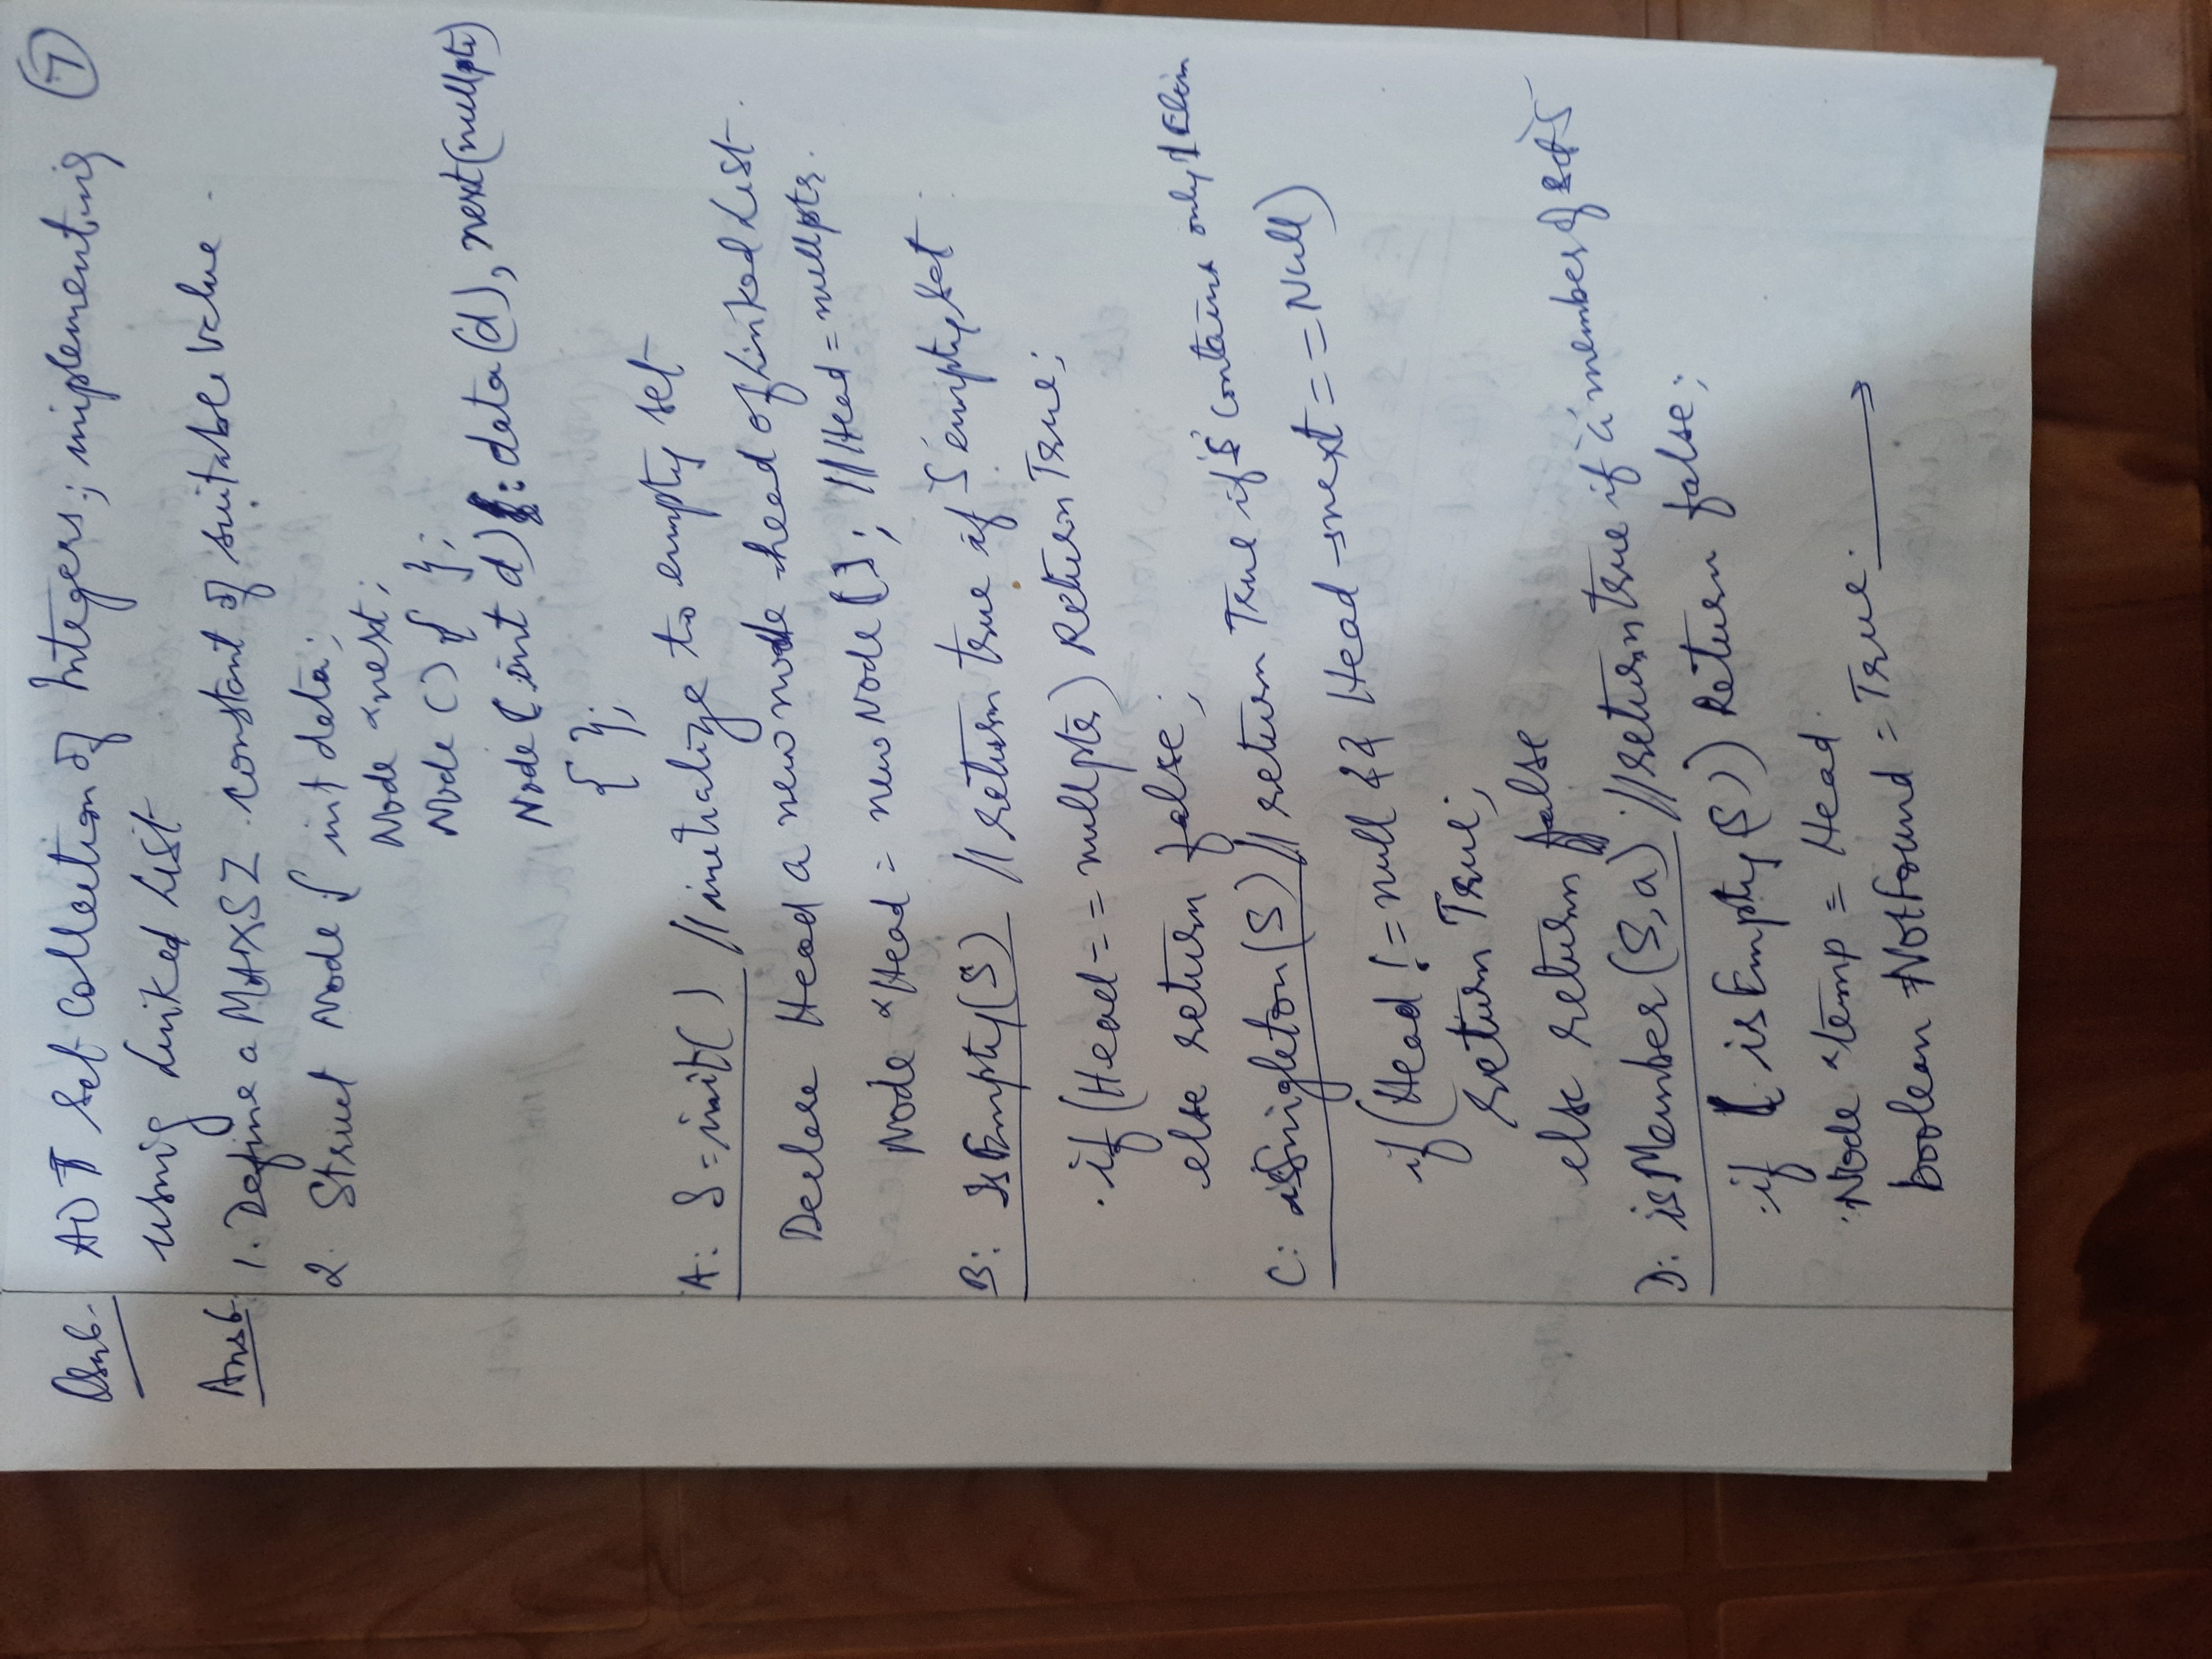 Qsn6. ADT Set Collection of Integers; implementing 7
using Linked List
Ans6. 1. Define a MAXSZ constant of suitable value.
2. Struct Node { int data;
Node *next;
Node () { };
Node (int d) : data(d), next(nullptr)
{ };
A: S=init() // initialize to empty set
Declare Head a new node head of Linked List.
Node *Head = new Node(); // Head = nullptr.
B: IsEmpty(S) // return true if 'S' empty set
if (Head == nullptr) Return True;
else return false;
C: isSingleton(S) // return True if 'S' contains only 1 Elem
if (Head != null && Head→next == Null)
return True;
else return false
D: isMember(S,a) // return true if 'a' member of set 'S'
if (isEmpty(S)) Return false;
Node *temp = Head.
boolean NotFound = True. →